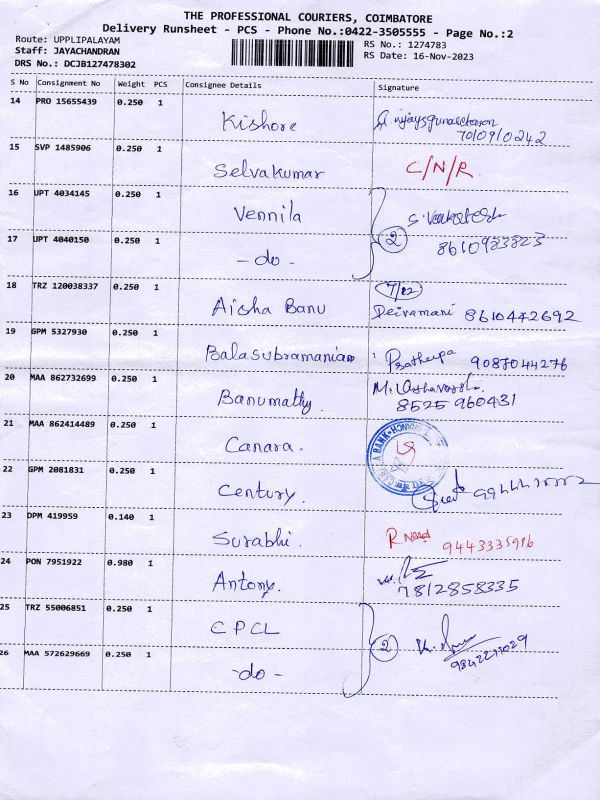 THE PROFESSIONAL COURIERS, COIMBATORE
Delivery Runsheet - PCS - Phone No.:0422-3505555 - Page No.:2
Route: UPPLIPALAYAM
Staff: JAYACHANDRAN
DRS No.: DCJB127478302
RS No.: 1274783
RS Date: 16-Nov-2023
S No Consignment No Weight PCS Consignee Details Signature
14 PRO 15655439 0.250 1 Kishore
7010910242
15 SVP 1485906 0.250 1 Selvakumar C/N/R
16 UPT 4034145 0.250 1 Vennila
17 UPT 4040150 0.250 1 - do - 2 8610933823
18 TRZ 120038337 0.250 1 Aisha Banu 7/12
Deivamani 8610442692
19 GPM 5327930 0.250 1 Balasubramanian 9087044276
20 MAA 862732699 0.250 1 Banumathy.
8525 960431
21 MAA 862414489 0.250 1 Canara.
22 GPM 2081831 0.250 1 Century.
23 DPM 419959 0.140 1 Surabhi.
24 PON 7951922 0.980 1 Antony.
7812858335
25 TRZ 55006851 0.250 1 CPCL
26 MAA 572629669 0.250 1 -do- 2